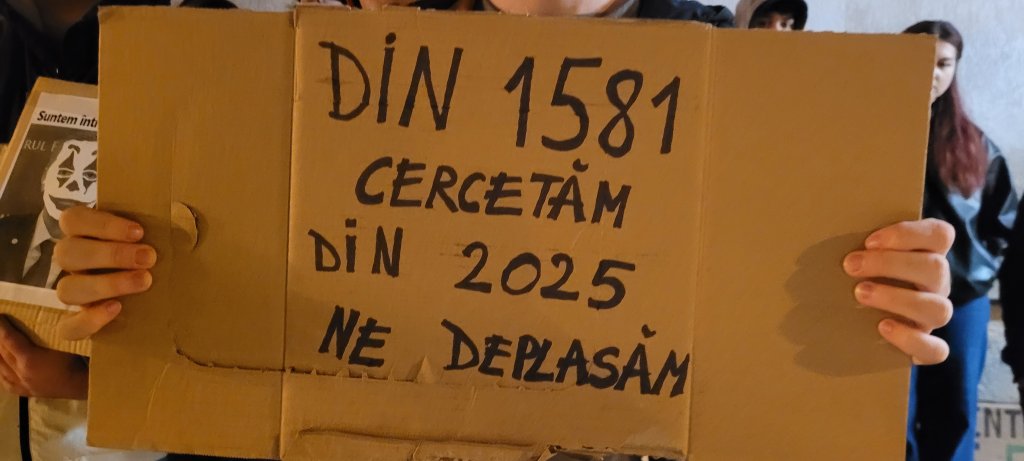 DIN 1581
CERCETĂM
DIN 2025
NE DEPLASĂM
Suntem într
RUL
ENT